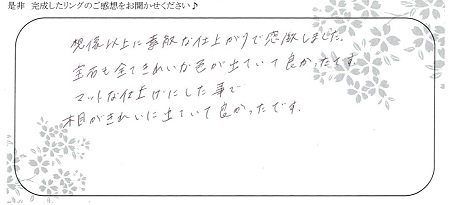 是非 完成したリングのご感想をお聞かせください♪
想像以上に素敵な仕上がりで感激しました。
宝石も全てきれいな色が出ていて良かったです。
マットな仕上げにした事で
木目がきれいに出ていて良かったです。